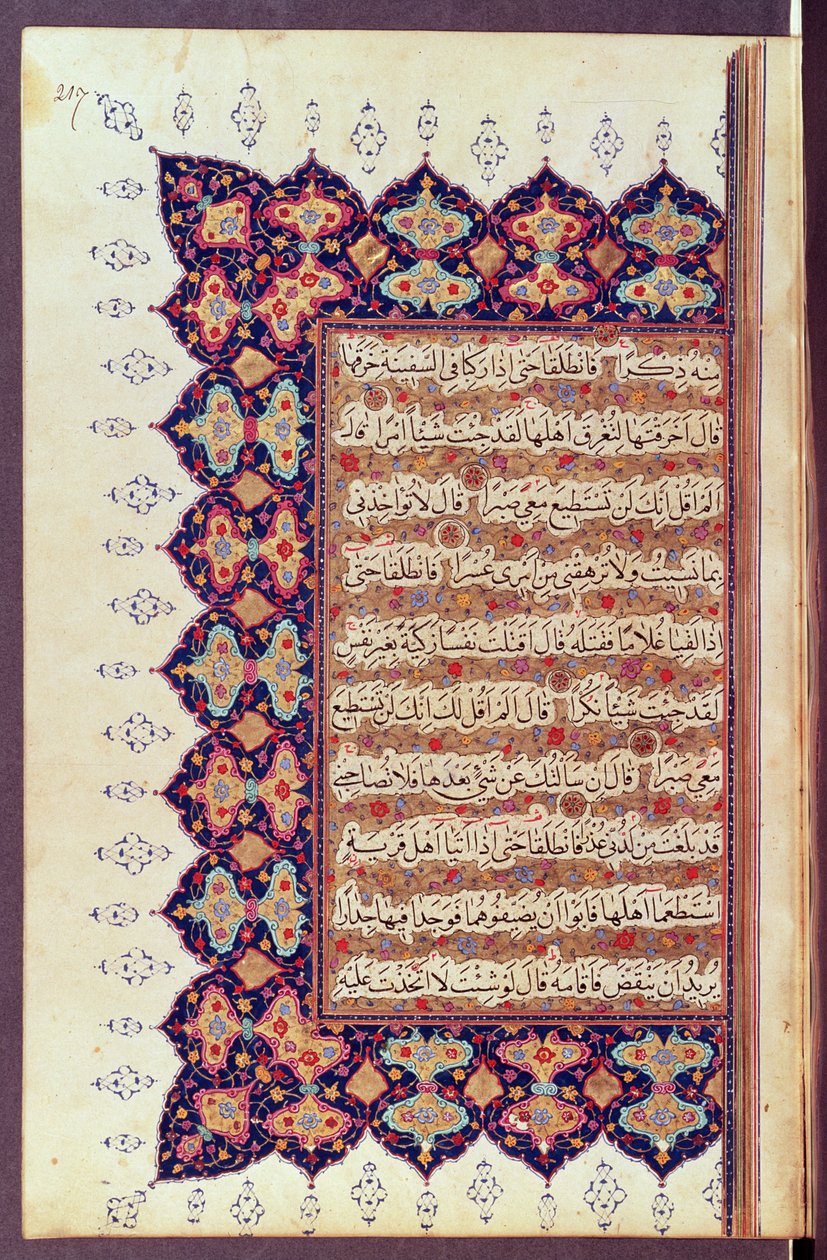 217
مِنْهُ ذِكْرًا فَانْطَلَقَا حَتّٰى اِذَا رَكِبَا فِى السَّفِينَةِ خَرَقَهَا
قَالَ اَخَرَقْتَهَا لِتُغْرِقَ اَهْلَهَا لَقَدْ جِئْتَ شَيْئًا اِمْرًا قَالَ
اَلَمْ اَقُلْ اِنَّكَ لَنْ تَسْتَطِيعَ مَعِىَ صَبْرًا قَالَ لَا تُؤَاخِذْنِى
بِمَا نَسِيتُ وَلَا تُرْهِقْنِى مِنْ اَمْرِى عُسْرًا فَانْطَلَقَا حَتّٰى
اِذَا لَقِيَا غُلَامًا فَقَتَلَهُ قَالَ اَقَتَلْتَ نَفْسًا زَكِيَّةً بِغَيْرِ نَفْسٍ
لَقَدْ جِئْتَ شَيْئًا نُكْرًا قَالَ اَلَمْ اَقُلْ لَكَ اِنَّكَ لَنْ تَسْتَطِيعَ
مَعِىَ صَبْرًا قَالَ اِنْ سَاَلْتُكَ عَنْ شَىْءٍ بَعْدَهَا فَلَا تُصَاحِبْنِى
قَدْ بَلَغْتَ مِنْ لَدُنِّى عُذْرًا فَانْطَلَقَا حَتّٰى اِذَا اَتَيَا اَهْلَ قَرْيَةٍ
اسْتَطْعَمَا اَهْلَهَا فَاَبَوْا اَنْ يُضَيِّفُوهُمَا فَوَجَدَا فِيهَا جِدَارًا
يُرِيدُ اَنْ يَنْقَضَّ فَاَقَامَهُ قَالَ لَوْ شِئْتَ لَاتَّخَذْتَ عَلَيْهِ